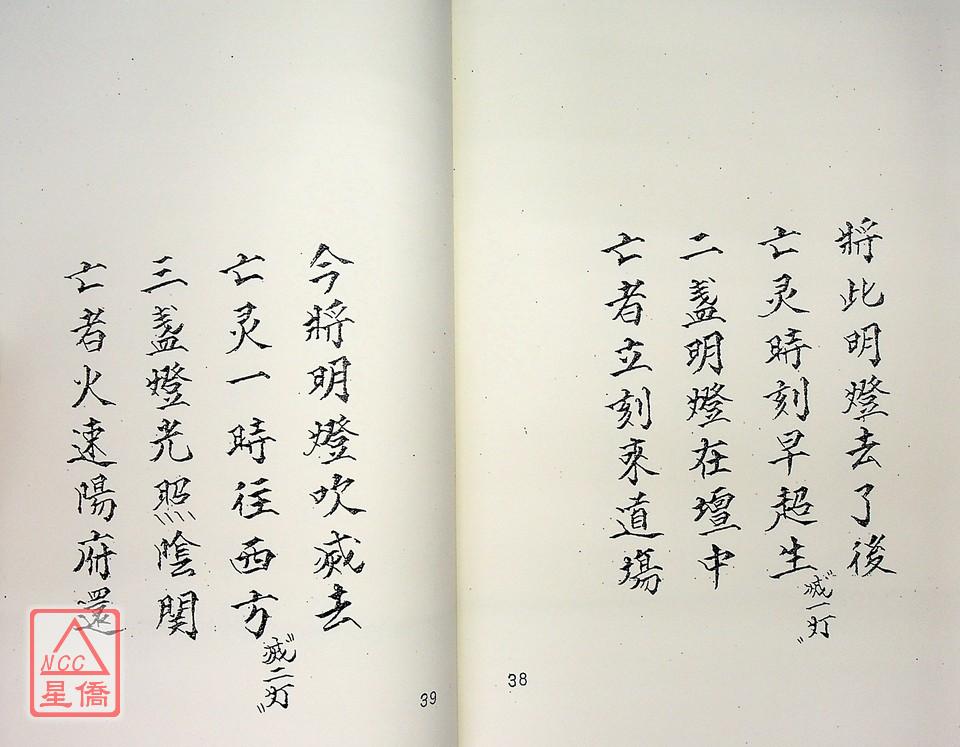 將此明燈去了後
亡灵時刻早超生
〝滅一灯〞
二盞明燈在壇中
亡者立刻來道場
38
今將明燈吹滅去
亡灵一時往西方
〝滅二灯〞
三盞燈光照陰関
亡者火速陽府還
39
NCC
星僑